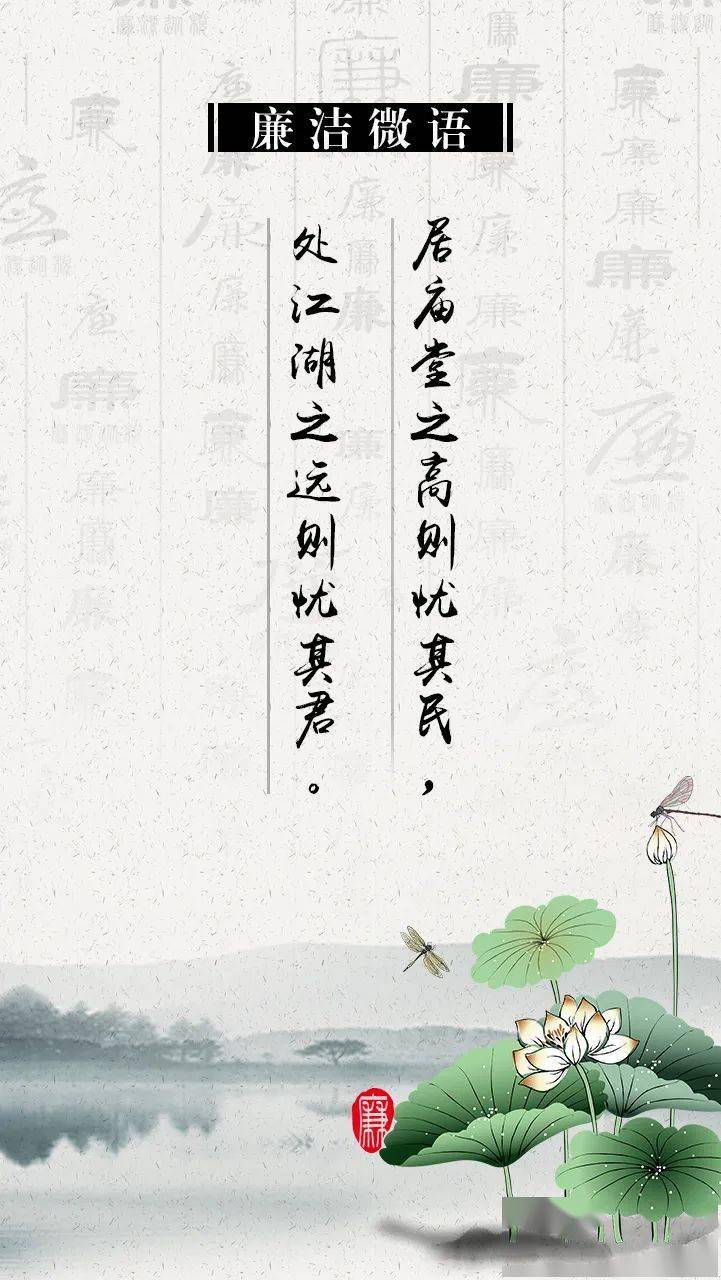 廉洁微语
居庙堂之高则忧其民，
处江湖之远则忧其君。
廉